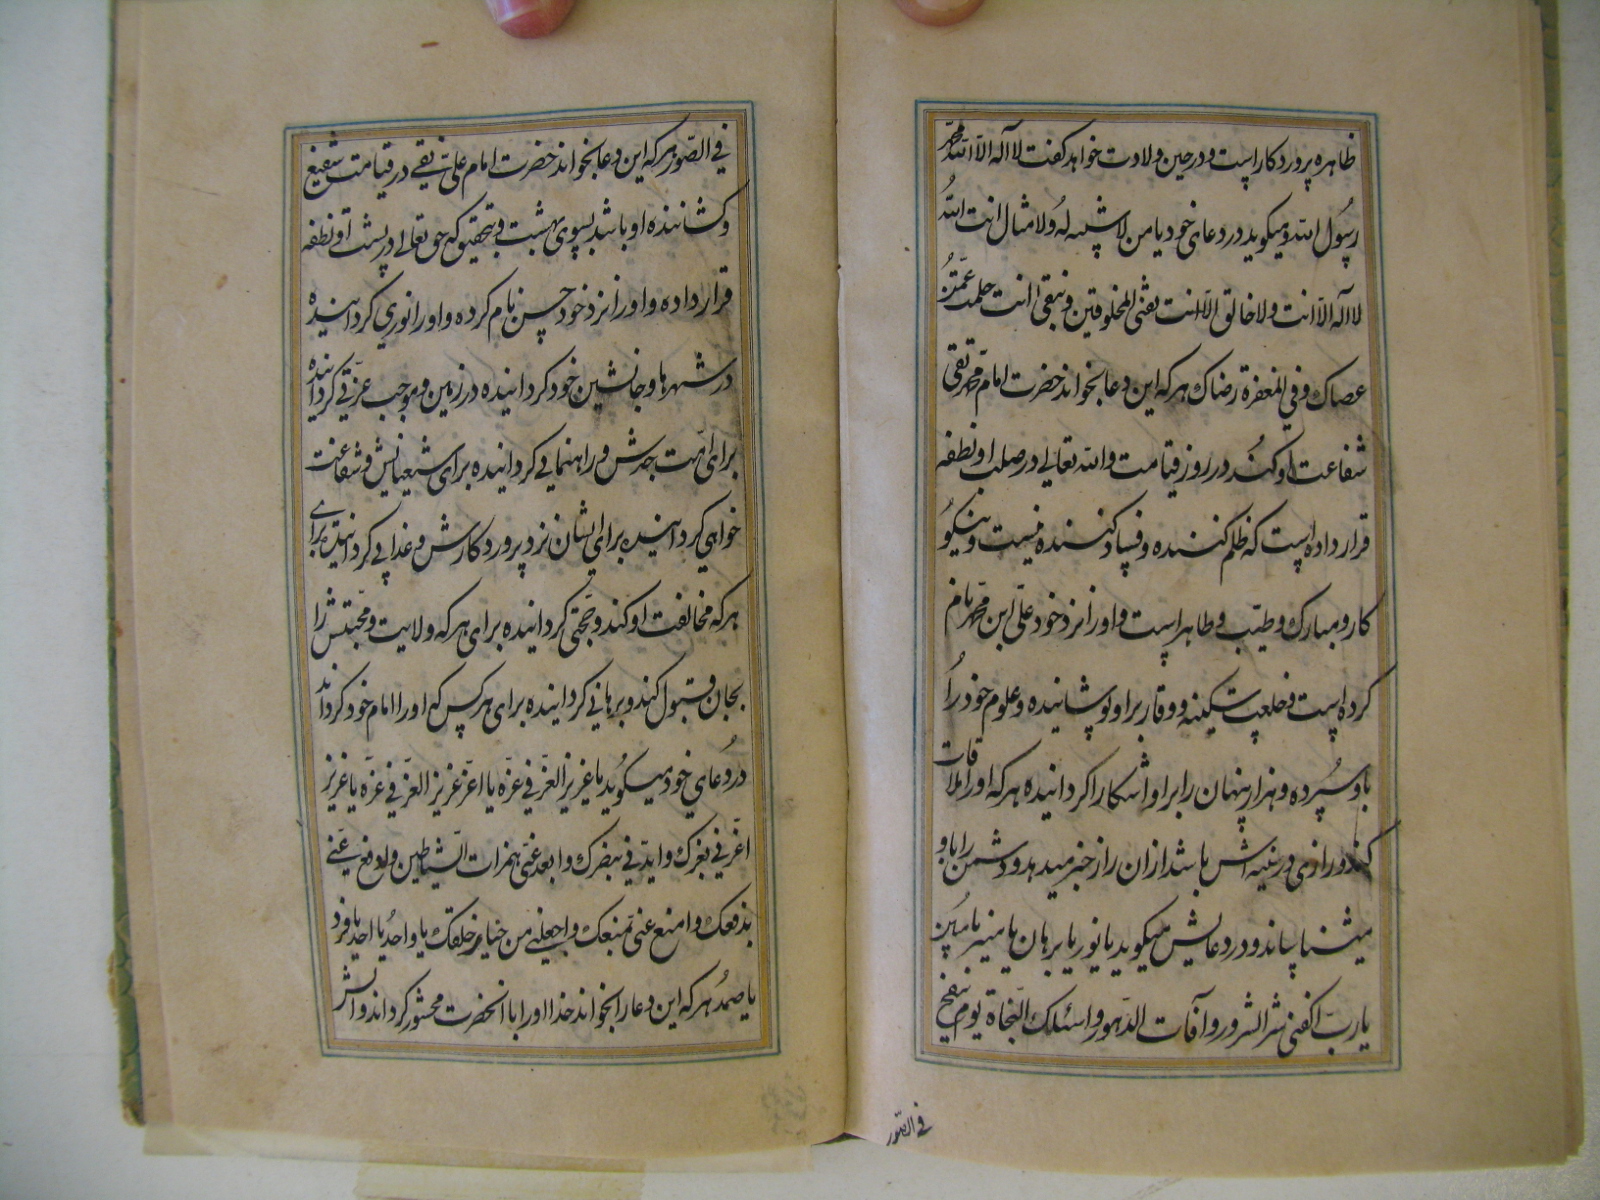 ظاهره پروردکار است و در حین ولادت خواهد کفت لا اله الا الله محمد
رسول الله و میکوید در دعای خود یا من لا شبیه له ولا مثال انت الله
لا اله الا انت ولا خالق الا انت تفنی المخلوقین و تبقی انت حلمت عمن
عصاک و فی المغفرة رضاک هر که این دعا بخواند حضرت امام محمد تقی
شفاعت او کند در روز قیامت و الله تعالی در صلب او نطفه
قرار داده است که ظلم کننده و فساد کننده نیست و نیکو
کار و مبارک و طیّب و طاهر است و او را نزد خود علی ابن محمد نام
کرده است و خلعت سکینه و وقار بر او پوشانیده و علوم خود را
باو سپرده و هر راز پنهان را بر او آشکارا کردانیده هر که او را ملاقات
کند و رازی در سینه اش باشد از ان راز خبر میدهد و دشمن را باو
میشناساند و در دعایش میکوید یا نور یا برهان یا منیر یا مبین
یا ربّ اکفنی شر الشرور و آفات الدّهور و اسئلک النّجاة یوم ینفخ
فی الصّور
فی الصّور هر که این دعا بخواند حضرت امام علی نقی در قیامت شفیع
و کشاننده او باشد بسوی بهشت و بتحقیق که حق تعالی در پشت او نطفه
قرار داده و او را نزد خود حسن نام کرده و او را نوری کردانیده
در شهرها و جانشین خود کردانیده در زمین و موجب عزتی کردانیده
برای امّت جدش و راهنمائی کردانیده برای شیعیانش و شفاعت
خواهی کردانیده برای ایشان نزد پروردکارش و عذابی کردانیده برای
هر که مخالفت او کند و حجّتی کردانیده برای هر که ولایت و محبّتش را
بجان قبول کند و برهانی کردانیده برای هر کس که او را امام خود کرداند
در دعای خود میکوید یا عزیز العزّ فی عزّه یا اعزّ عزیز العزّ فی عزّه یا عزیز
اعزّنی بعزّک و ایدنی بنصرک و ابعد عنّی همزات الشّیاطین و ادفع عنّی
بدفعک و امنع عنّی بمنعک و اجعلنی من خیار خلقک یا واحد یا احد یا فرد
یا صمد هر که این دعا را بخواند خدا او را با آنحضرت محشور کرداند و اتش